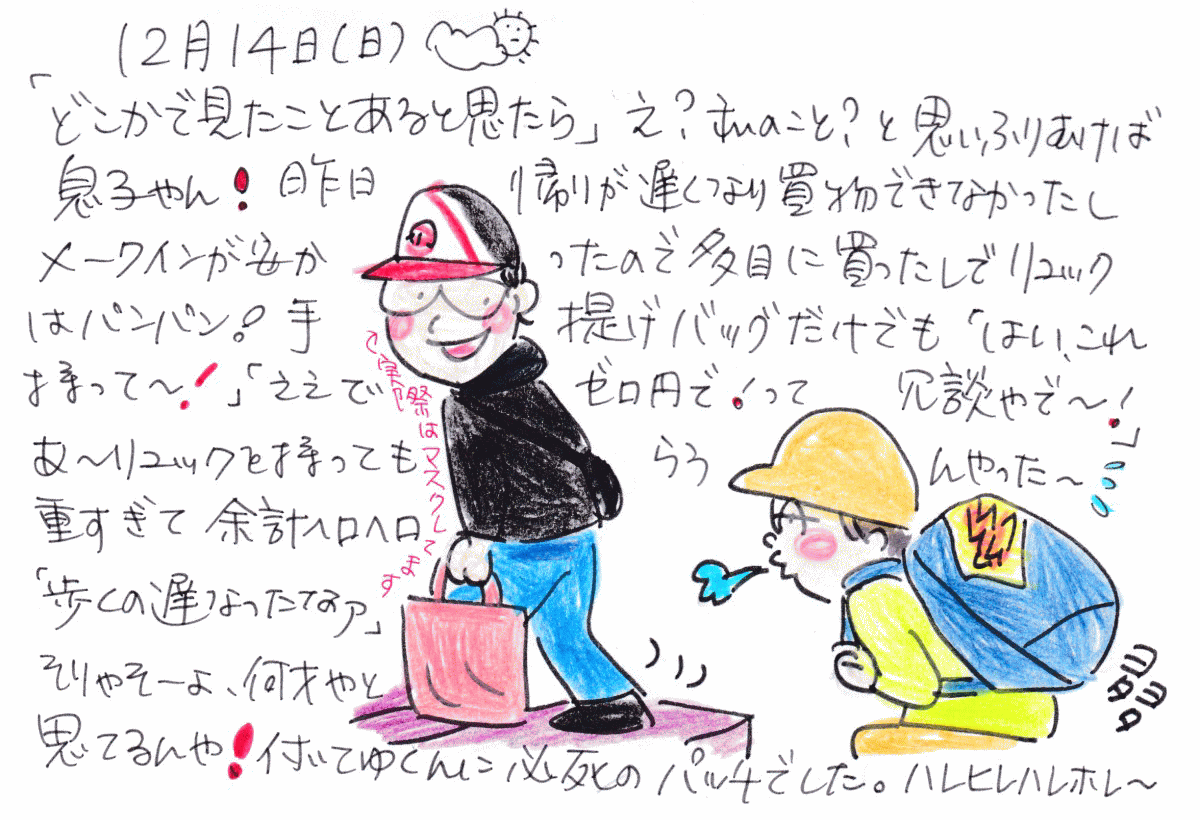 12月14日(日)
「どこかで見たことあると思たら」え?私のこと?と思いふりむけば
息子やん!昨日帰りが遅くなり買物できなかったし
メークインが安かったので多目に買ったしでリュック
はパンパン。手提げバッグだけでも「はい、これ
持って〜!」「ええでゼロ円で!って冗談やで〜!」
あ〜リュックを持ってもらうんやった〜
重すぎて余計ヘロヘロ
「歩くの遅なったなァ」
そりゃそーよ、何才やと
思てるんや!付いてゆくんに必死のパッチでした。ハレヒレハレホレ〜
↑実際はマスクしてます
ヨタヨタ